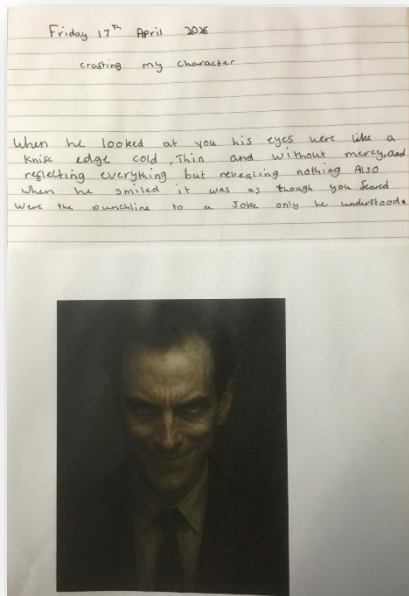 Friday 17th April 2026
crafting my character
When he looked at you his eyes were like a
knife edge cold, Thin and without mercy, and
reflecting everything but revealing nothing Also
when he smiled it was as though you feared
were the punchline to a Joke only he understood.